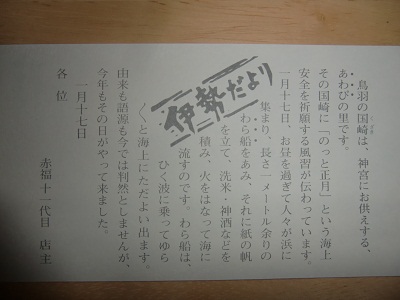 伊勢だより
鳥羽の国崎は、神宮にお供えする、
あわびの里です。
その国崎に「のっと正月」という海上
安全を祈願する風習が伝わっています。
一月十七日、お昼を過ぎて人々が浜に
集まり、長さ一メートル余りの
わら船をあみ、それに紙の帆
を立て、洗米・神酒などを
積み、火をはなって海に
流すのです。わら船は、
ひく波に乗ってゆら
〱と海上にただよい出ます。
由来も語源も今では判然としませんが、
今年もその日がやって来ました。
一月十七日
赤福 十一代目 店主
各位